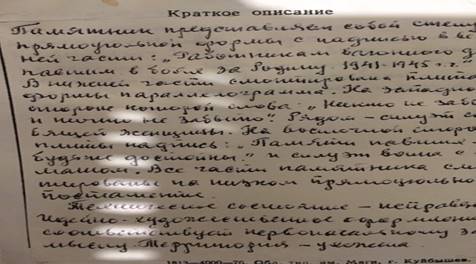 Краткое описание
Памятник представляет собой стелу
прямоугольной формы с надписью в верх
ней части: „Работникам вагонного д
павшим в боях за Родину. 1941-1945 г.г."
В нижней части смонтирована плита
формы параллелограмма. На западно
стороне которой слова: „Никто не заб
и ничто не забыто". Рядом – силуэт ск
бящей женщины. На восточной стор
плиты надпись: „Памяти павших
будьте достойны." и силуэт воина с
матом. Все части памятника см
тированы на низком прямоугольно
постаменте.
Техническое состояние – исправн
Идейно-художественное оформлен
соответствует первоначальному за
мыслу. Территория – ухожена
1813—4000—76. Обл. тип. им. Мяги, г. Куйбышев